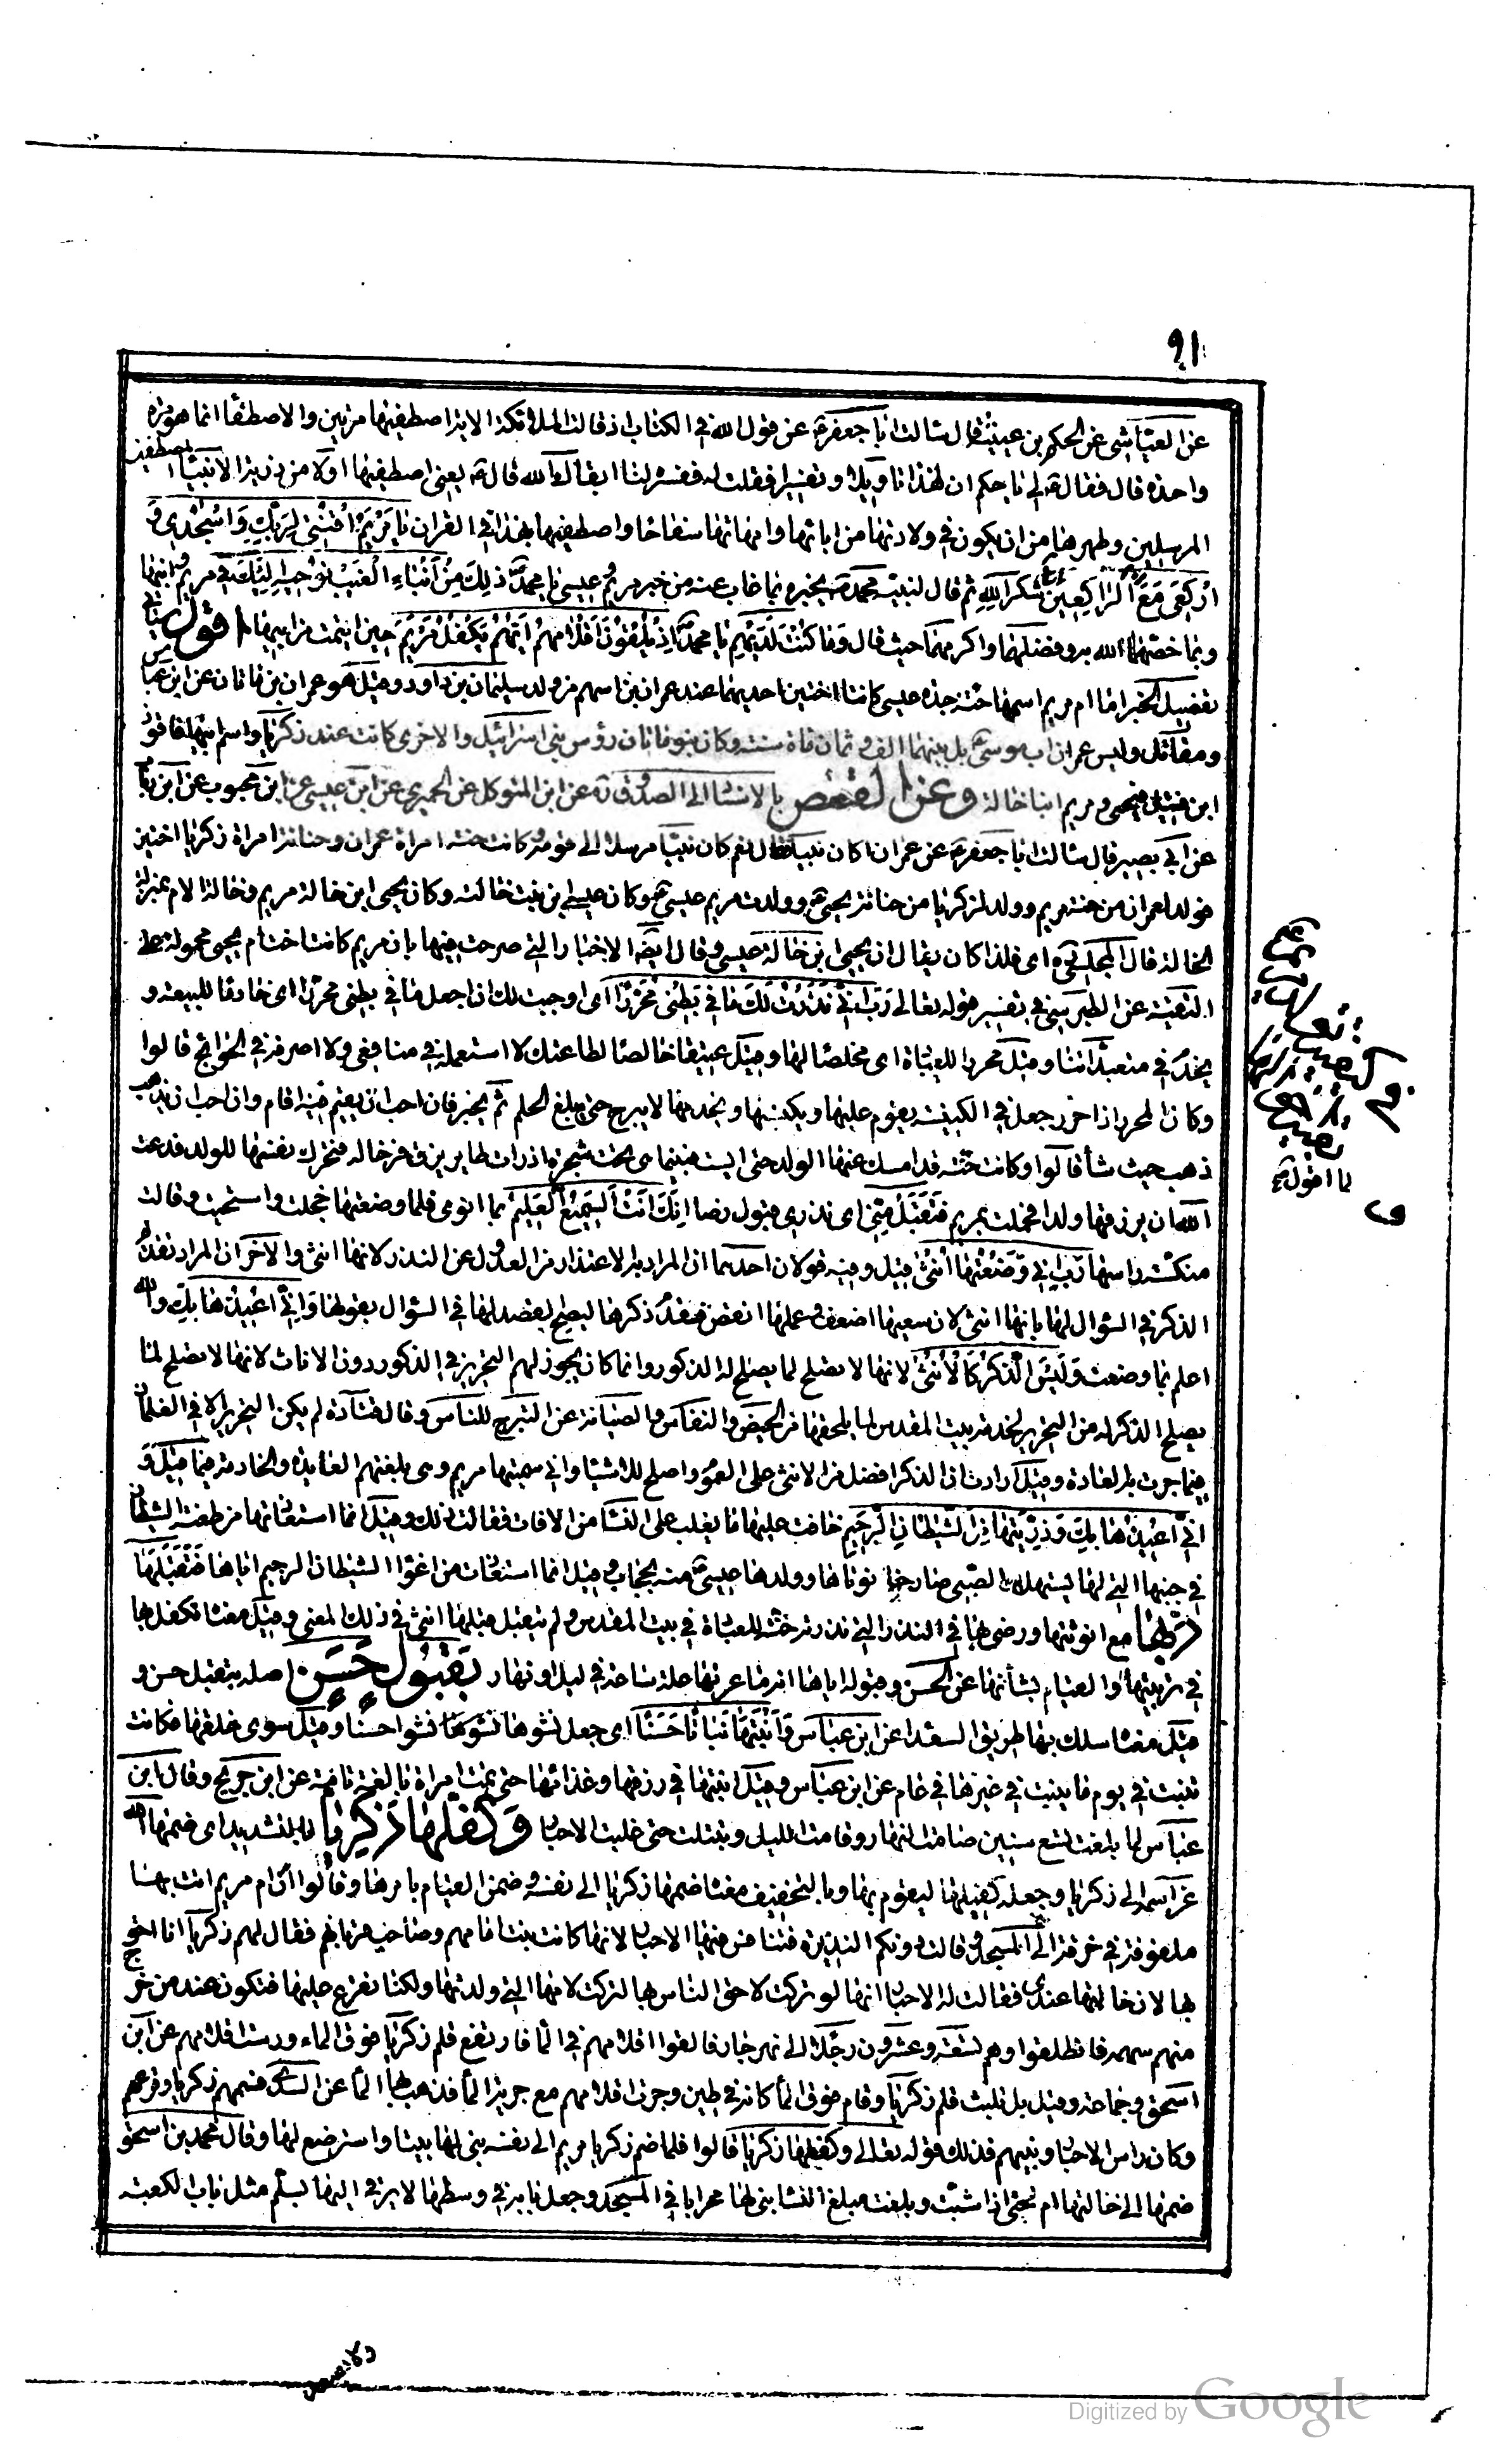 ٩١
عن العيّاشي عن الحكم بن عيينة قال سالت ابا جعفر ع عن قول الله في الكتاب اذ قالت الملائكة الاية اصطفيها مرتين والاصطفا انما هو مرة
واحدة قال فقال ع لي يا حكم ان لهذا تاويلا وتفسيرا فقلت له ففسر لنا ابقاك الله قال ع يعني اصطفيها اولا من ذرية الانبيا المصطفين
المرسلين وطهرها من ان يكون في ولادتها من ابائها وامهاتها سفاحا واصطفيها بهذا في القران يا مَرْيَمُ اقْنُتِي لِرَبِّكِ وَاسْجُدِي وَ
ارْكَعِي مَعَ الرَّاكِعِينَ شكرا لله ثم قال لنبيه محمد ص يخبره بما غاب عنه من خبر مريم وعيسى يا محمد ذلِكَ مِنْ أَنْباءِ الْغَيْبِ نُوحِيهِ إِلَيْكَ في مريم وابنها
وبما خصّهما الله به وفضلهما واكرمهما حيث قال وَما كُنْتَ لَدَيْهِمْ يا محمد إِذْ يُلْقُونَ أَقْلامَهُمْ أَيُّهُمْ يَكْفُلُ مَرْيَمَ حين ايتمت من ابيها اقول
تفصيل الخبر اما ام مريم اسمها حنة جدة عيسى كانتا اختين احديهما عند عمران بن اسهم من ولد سليمان بن داود وقيل هو عمران بن ماثان عن ابن عبا
ومقاتل وليس عمران اب موسى ع بل بينهما الف وثمان ماة سنة وكان بنو ماثان رؤس بني اسرائيل والاخرى كانت عند زكريا واسم ابيها فاقوذ
ابن قبيل فيحيى ومريم ابنا خالة وعن القصص بالاسناد الى الصدوق ره عن ابن المتوكل عن الحميري عن ابن عيسى عن ابن محبوب عن ابن رئاب
عن ابي بصير قال سالت ابا جعفر ع عن عمران اكان نبيا فقال نعم كان نبيا مرسلا الى قومه وكانت حنة امراة عمران وحنانة امراة زكريا اختين
فولد لعمران من حنة مريم وولد لزكريا من حنانة يحيى ع وولدت مريم عيسى ع وكان عيسى ابن بنت خالته وكان يحيى ابن خالة مريم وخالة الام بمنزلة
الخالة قال المجلسي ره اي فلذا كان يقال ان يحيى ابن خالة عيسى وقال ايضا الاخبار التي صرحت فيها بان مريم كانت اخت ام يحيى محمولة على
التقية عن الطبرسي في تفسير قوله تعالى رَبِّ إِنِّي نَذَرْتُ لَكَ ما فِي بَطْنِي مُحَرَّراً اي اوجبت لك ان اجعل ما في بطني محررا اي خادما للبيعة و
يخدم في متعبداتنا وقيل محررا للعبادة اي مخلصا لها وقيل عتيقا خالصا لطاعتك لا استعمله في منافعي ولا اصرفه في الحوائج قالوا
وكان المحرر اذا حرر جعل في الكنيسة يقوم عليها ويكنسها ويخدمها لا يبرح حتى يبلغ الحلم ثم يخير فان احب ان يقيم فيه اقام وان احب ان يذهب
ذهب حيث شا قالوا وكانت حنّة قد امسك عنها الولد حتى ايست فبينما هي تحت شجرة اذ رات طاير يزق فرخا له فتحرك نفسها للولد فدعت
الله ان يرزقها ولدا فحملت بمريم فَتَقَبَّلْ مِنِّي اي نذري قبول رضا إِنَّكَ أَنْتَ السَّمِيعُ الْعَلِيمُ بما انوي فلما وضعتها خجلت واستحيت وقالت
منكسة راسها رَبِّ إِنِّي وَضَعْتُها أُنْثى قيل وفيه قولان احدهما ان المراد به الاعتذار من العدول عن النذر لانها انثى والاخر ان المراد تقديم
الذكر في السؤال لها بانها انثى لان سعيها اضعف وعملها انقص فقدم ذكرها ليصح لقصد لها في السؤال بقولها وَإِنِّي أُعِيذُها بِكَ والله
اعلم بما وضعت وَلَيْسَ الذَّكَرُ كَالْأُنْثى لانها لا تصلح لما يصلح له الذكور وانما كان يجوز لهم التحرير في الذكور دون الاناث لانها لا تصلح لما
يصلح الذكر له من التحرير لخدمة بيت المقدس لما يلحقها من الحيض والنفاس والصيانة عن التبرج للناس وقال قتادة لم يكن التحرير الا في الغلمان
فيما جرت به العادة وقيل ارادت ان الذكر افضل من الانثى على العموم واصلح للاشيا واني سميتها مريم وهي بلغتهم العابدة والخادمة فيما قيل وَ
إِنِّي أُعِيذُها بِكَ وَذُرِّيَّتَها مِنَ الشَّيْطانِ الرَّجِيمِ خافت عليها ما يغلب على النسا من الافات فقالت ذلك وقيل انما استعاذتها من طعنة الشيطان
في جنبها التي لها يستهل الصبي صارخا فوقاها وولدها عيسى ع منه بحجاب وقيل انما استعاذت من اغوا الشيطان الرجيم اياها فَتَقَبَّلَها
رَبُّها مع انوثتها ورضي بها في النذر التي نذرته حنّة للعبادة في بيت المقدس ولم يتقبل قبلها انثى في ذلك المعنى وقيل معناه تكفل بها
في تربيتها والقيام بشأنها عن الحسن وقبوله اياها انه ما عرتها علة ساعة في ليل ونهار بِقَبُولٍ حَسَنٍ اصله بتقبل حسن و
قيل معناه سلك بها طريق السعدا عن ابن عباس وَأَنْبَتَها نَباتاً حَسَناً اي جعل نشوها نشوا حسنا وقيل سوى خلقها فكانت
تنبت في يوم ما ينبت في غيرها في عام عن ابن عباس وقيل انبتها في رزقها وغذائها حتى نمت امراة بالغة تامة عن ابن جريج وقال ابن
عباس لما بلغت تسع سنين صامت النهار وقامت الليل وتبتلت حتى غلبت الاحبار وَكَفَّلَها زَكَرِيَّا بالتشديد اي ضمها الله
عز اسمه الى زكريا وجعله كفيلها ليقوم بها وبالتخفيف معناه ضمها زكريا الى نفسه وضمن القيام بامرها وقالوا ان ام مريم اتت بها
ملفوفة في خرقة الى المسجد وقالت دونكم النذيرة فتنافس فيها الاحبار لانها كانت بنت امامهم وصاحب قربانهم فقال لهم زكريا انا احق
بها لان خالتها عندي فقالت له الاحبار انها لو تركت لاحق الناس بها لتركت لامها التي ولدتها ولكنا نقترع عليها فتكون عند من خرج
منهم سهمه فانطلقوا وهم تسعة وعشرون رجلا الى نهر جار فالقوا اقلامهم في الما فارتفع قلم زكريا فوق الماء ورست اقلامهم عن ابن
اسحق وجماعة وقيل بل ثبت قلم زكريا وقام فوق الما كانه في طين وجرت اقلامهم مع جرية الما فذهب بها الما عن السدي فسهمهم زكريا وقرعهم
وكان راس الاحبار ونبيهم فذلك قوله تعالى وكفلها زكريا قالوا فلما ضم زكريا مريم الى نفسه بنى لها بيتا واسترضع لها وقال محمد بن اسحق
ضمها الى خالتها ام يحيى حتى اذا شبّت وبلغت مبلغ النسا بنى لها محرابا في المسجد وجعل بابه في وسطها لا يرقى اليها الا بسلّم مثل باب الكعبة
Digitized by Google